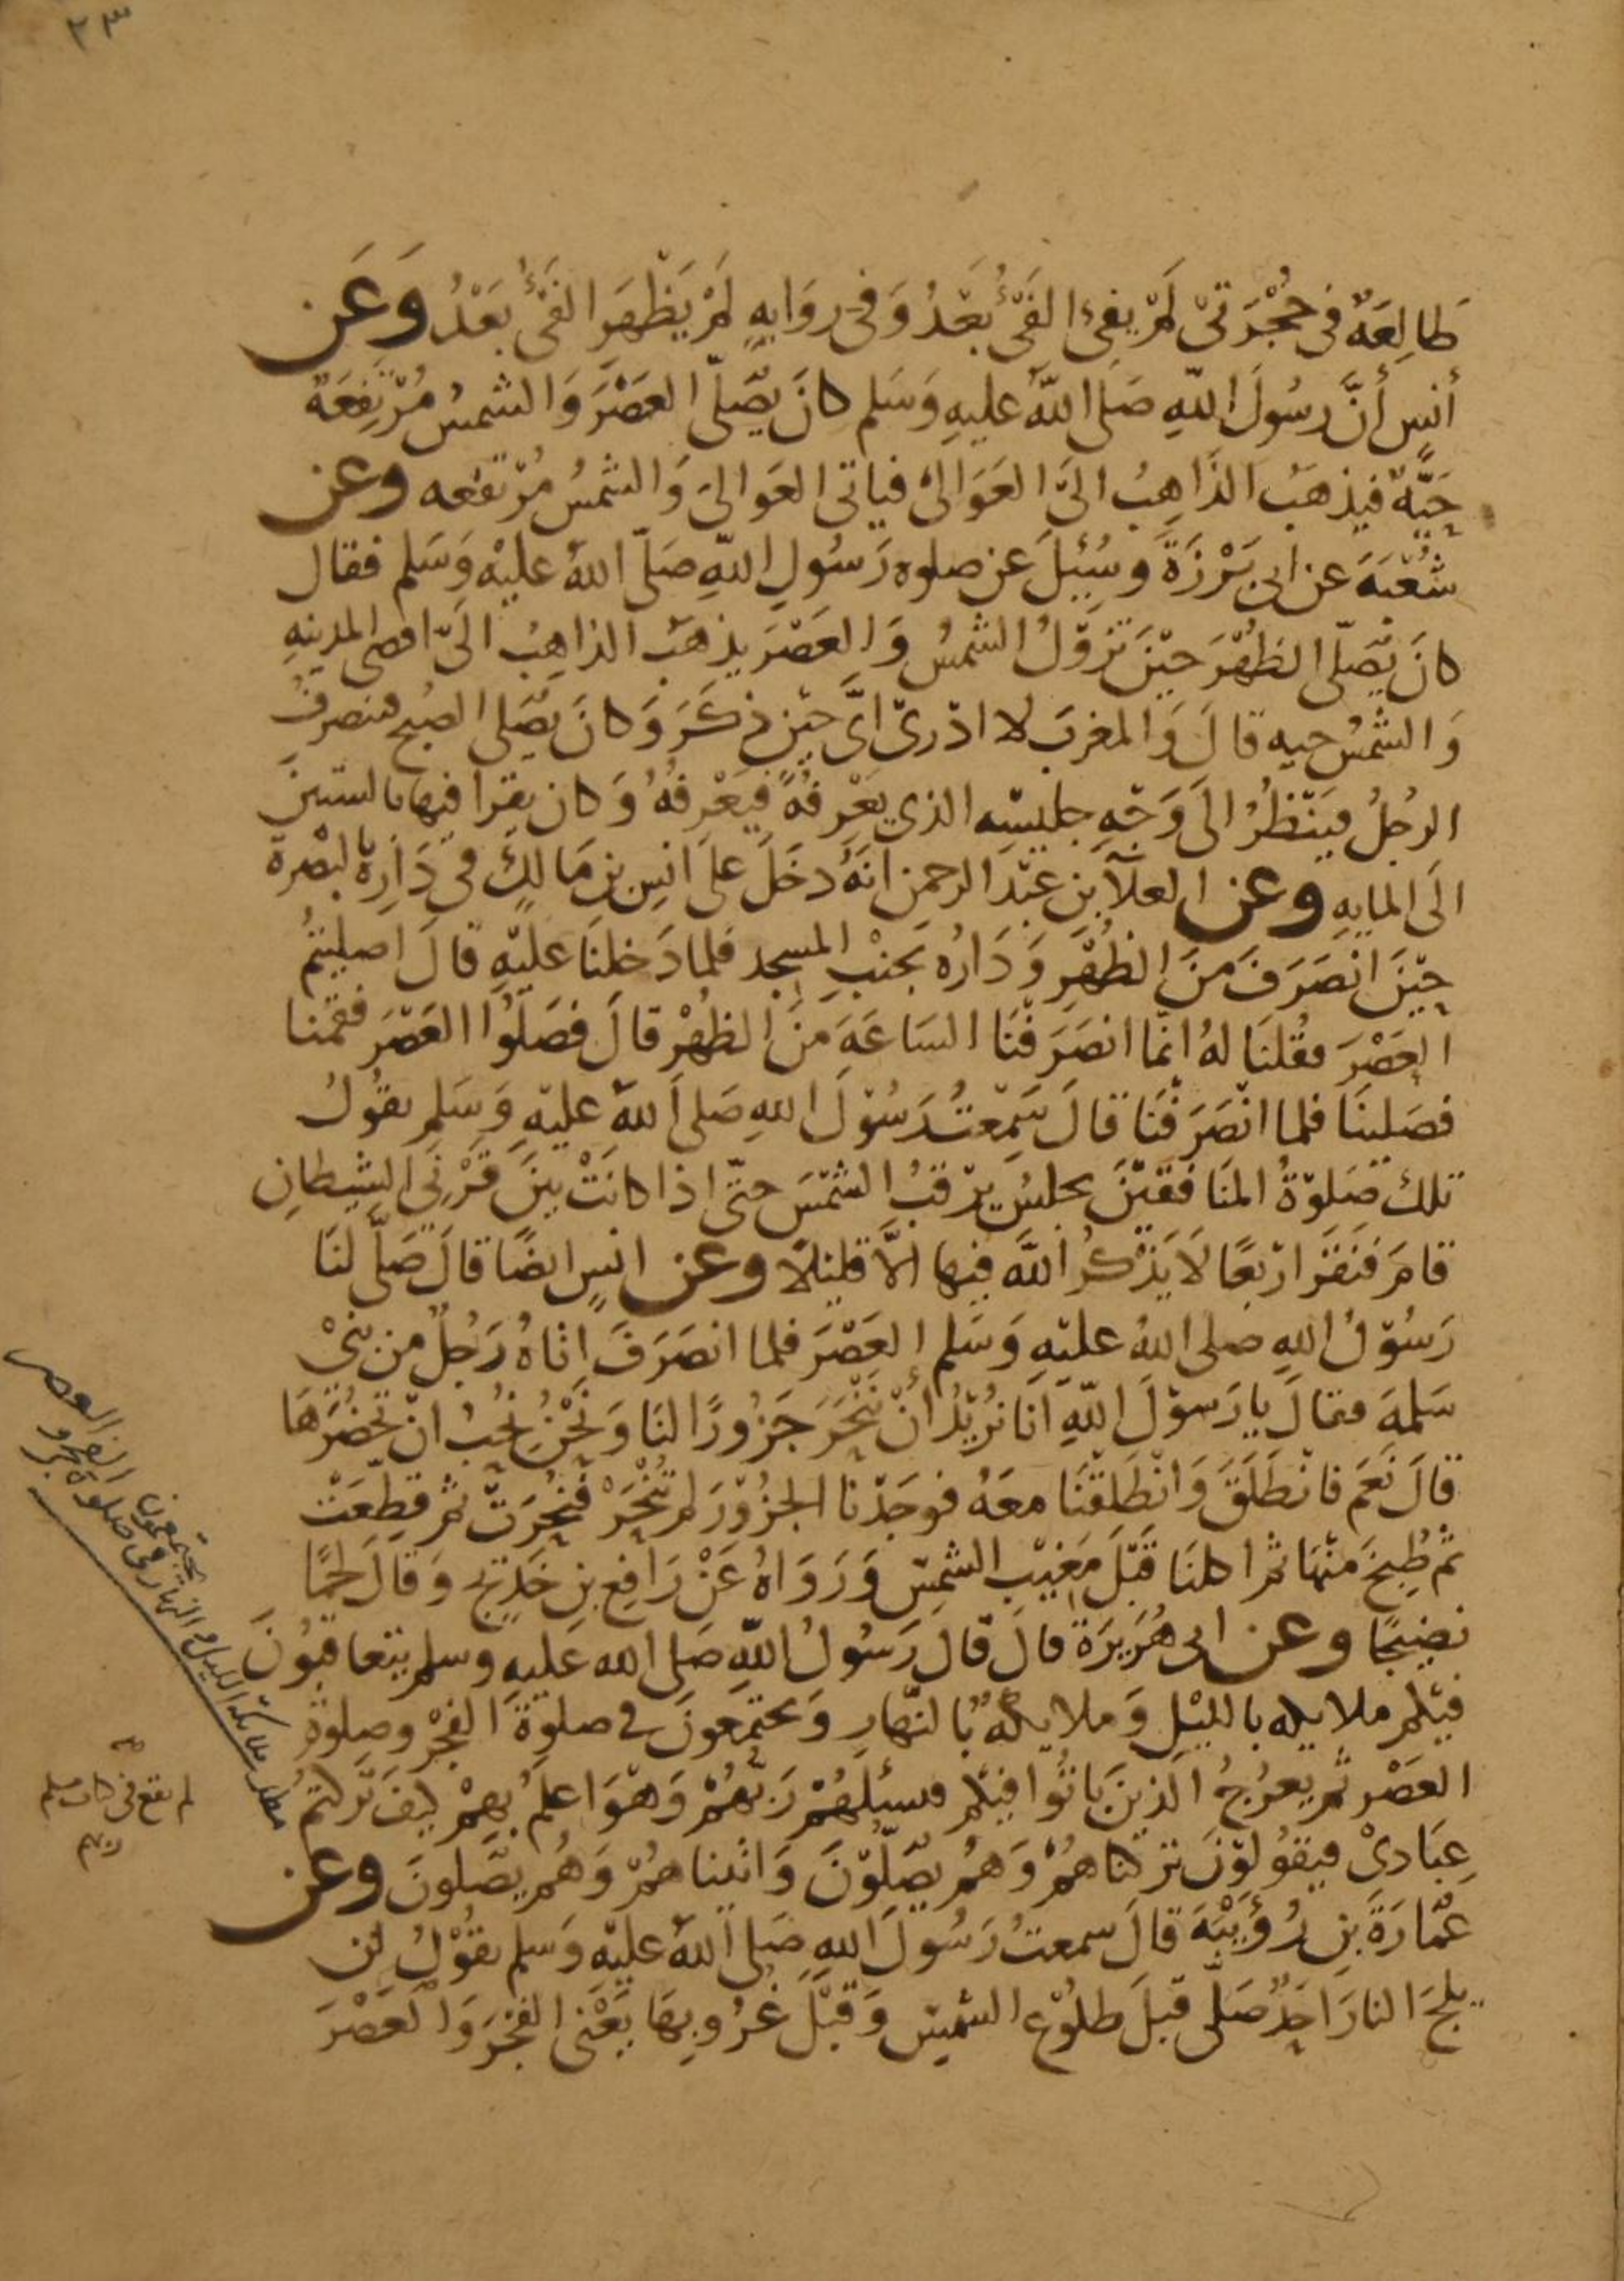 ٢٣
طَالِعَةٌ فى حُجْرَتىْ لَمْ يفِىءِ الفَىْءُ بَعْدُ وَفى روَايهٍ لَمْ يَظْهَرِ الفَىْءُ بَعْدُ وَعَن
أنسٍ أنَّ رسُولَ اللّهِ صَلى اللّهُ عليهِ وَسَلم كانَ يُصَلّى العَصْرَ وَالشمسُ مُرْتفِعَةٌ
حَيَّةٌ فيذهَبُ الذَاهِبُ الىَ العَوَالىْ فياتى العَوالىَ وَالشمسُ مُرْتفعه وعن
شُعْبَةَ عن ابى بَرْزَةَ وسُئِلَ عن صلوه رَسُولِ اللّهِ صَلّى اللهُ عليْهِ وَسَلم فقال
كانَ يُصَلّى الظُهْرَ حيْنَ تَزوْلُ الشمْسُ وَالعَصْرَ يذهَبُ الذاهِبُ الىَ اقصى المدينهِ
وَالشمْسُ حيه قالَ وَالمغربَ لا ادْرىْ اىَّ حيْنٍ ذكَرَ وَكانَ يُصَلى الصبح فينصرِفُ
الرجُلُ فيَنْظُرُ الىَ وَجْهِ جليْسِهِ الذي يَعْرِفُهُ فيَعْرِفُهُ وَكان يقرا فيها بالستينَ
الىَ المايهِ وعن العلآ بنِ عبْدِ الرحمن انهُ دخَلَ علىَ انسِ بنِ مَالكٍ فى دَارِهِ بالبَصْرة
حيْنَ انْصَرَفَ منَ الظُهْرِ وَدَارُه بجَنْبِ المسجد فلما دَخلنَا عليْهِ قالَ اصليتمُ
العَصْرَ فقُلنَا لهُ انما انصَرَفْنَا السَاعَةَ منَ الظهْرِ قالَ فصَلّوُا العَصْرَ فقمنا
فصَلينَا فلما انْصَرَفْنَا قالَ سَمِعْتُ رَسُوْلَ اللهِ صَلى اللهُ عليْهِ وَسَلم يقُولُ
تلك صَلوْةُ المنَافقيْنَ يجلسُ يرْقبُ الشمْسَ حتىّ اذا كانَتْ بينَ قَرْنَىِ الشيطانِ
قامَ فَنقَرَ ارْبعًا لاَ يَذْكرُ اللّهَ فيها الاَّ قليْلاً وعن انسٍ ايضًا قالَ صَلّى لنَا
رَسُوْلُ اللهِ صلى اللهُ عليْهِ وَسَلم العَصْرَ فلما انصَرَفَ اتاهُ رَجُلٌ من بنىْ
سَلِمَةَ فقالَ يا رَسوْلَ اللّهِ انا نُرِيْدُ انْ نَنْحَرَ جَزُورًا لنَا وَنحْنُ نُحِبُ انْ تحْضُرَهَا
قالَ نَعَم فانطَلَقَ وَانْطَلَقْنَا معَهُ فوجَدْنا الجزُوْرَ لم تُنْحَرْ فنُحِرَتْ ثم قطِّعَتْ
ثم طُبِخَ منْهَا ثم اكلنَا قبْلَ مَغيْبِ الشمْسِ وَرَوَاهُ عَنْ رَافِعِ بنِ خَدِيْجٍ وَقالَ لحمًا
نضِيْجًا وعن ابى هُرَيرَةَ قالَ قال رَسُولُ اللّهِ صَلى الله عَليهِ وسلم يتعَاقبُونَ
فيْكم ملايكه بالليْلِ وَملايكةٌ بالنّهارِ وَيجْتمعونَ فى صلوةِ الفجْرِ وصلوة
العَصْرِ ثم يعرُجُ الذينَ باتُوا فيْكم فيسئلهُمْ رَبّهُمْ وَهْوَ اعلمُ بهمْ كيفَ تركتمُ
عِبَادىْ فيقوُلوْنَ تركناهُمْ وَهُمْ يصَلّوْنَ وَاتيناهمُ وَهُم يصَلونَ وعن
عمّارَةَ بنِ رُؤَيْبَةَ قالَ سمعتُ رَسُولَ اللهِ صَلى اللهُ عليْهِ وَسلم يقُوْلُ لن
يلجَ النارَ احَدٌ صَلّى قبلَ طلوْعِ الشمْسِ وَقبْلَ غُرُوبهَا يَعْنى الفجْرَ وَالعَصْرَ
ملايكة الليل والنهار فى صلوة الفجر و العصر
يجتمعون
لم يقع فى كتاب مسلم